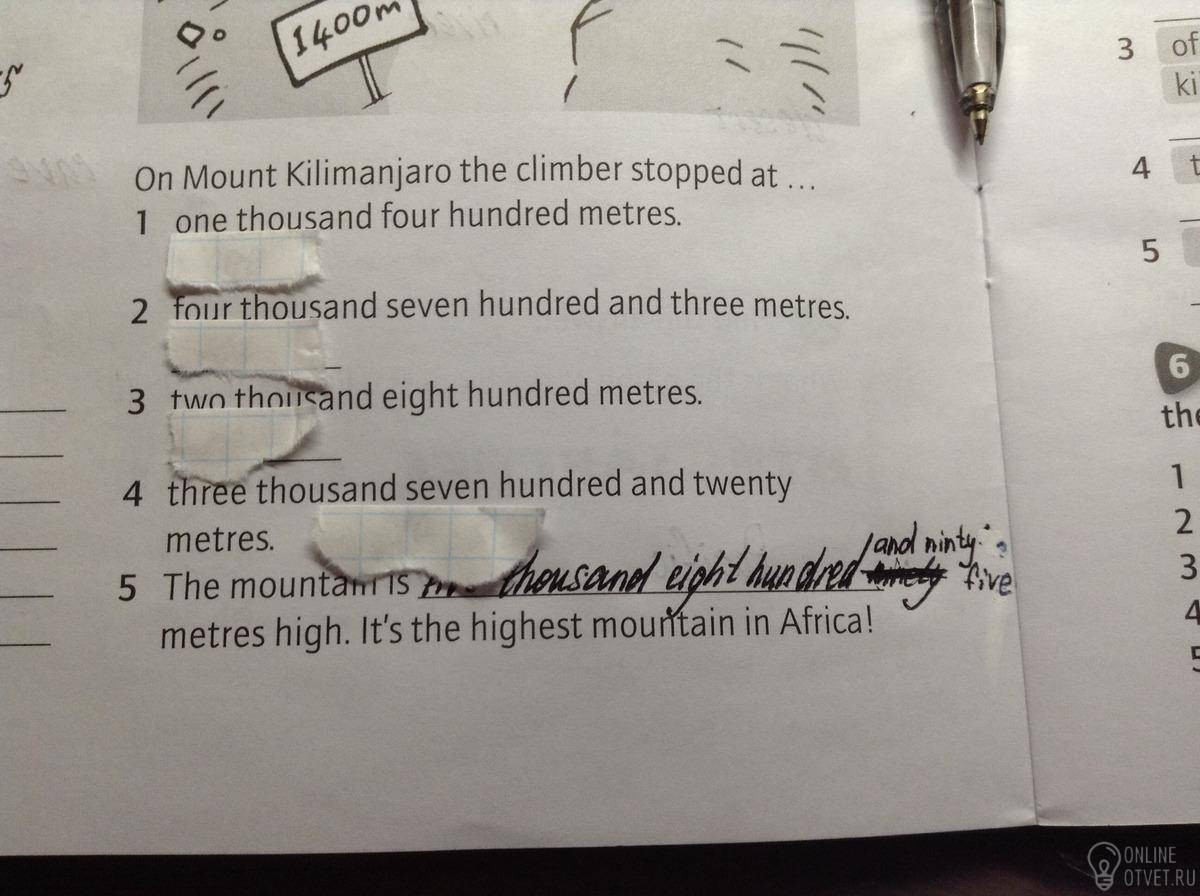 1400m
On Mount Kilimanjaro the climber stopped at ...
1 one thousand four hundred metres.
2 four thousand seven hundred and three metres.
3 two thousand eight hundred metres.
4 three thousand seven hundred and twenty
metres.
and ninty
5 The mountain is thousand eight hundred five
metres high. It's the highest mountain in Africa!
3 of
ki
4 t
5
6
the
1
2
3
4
5
ONLINE
OTVET.RU